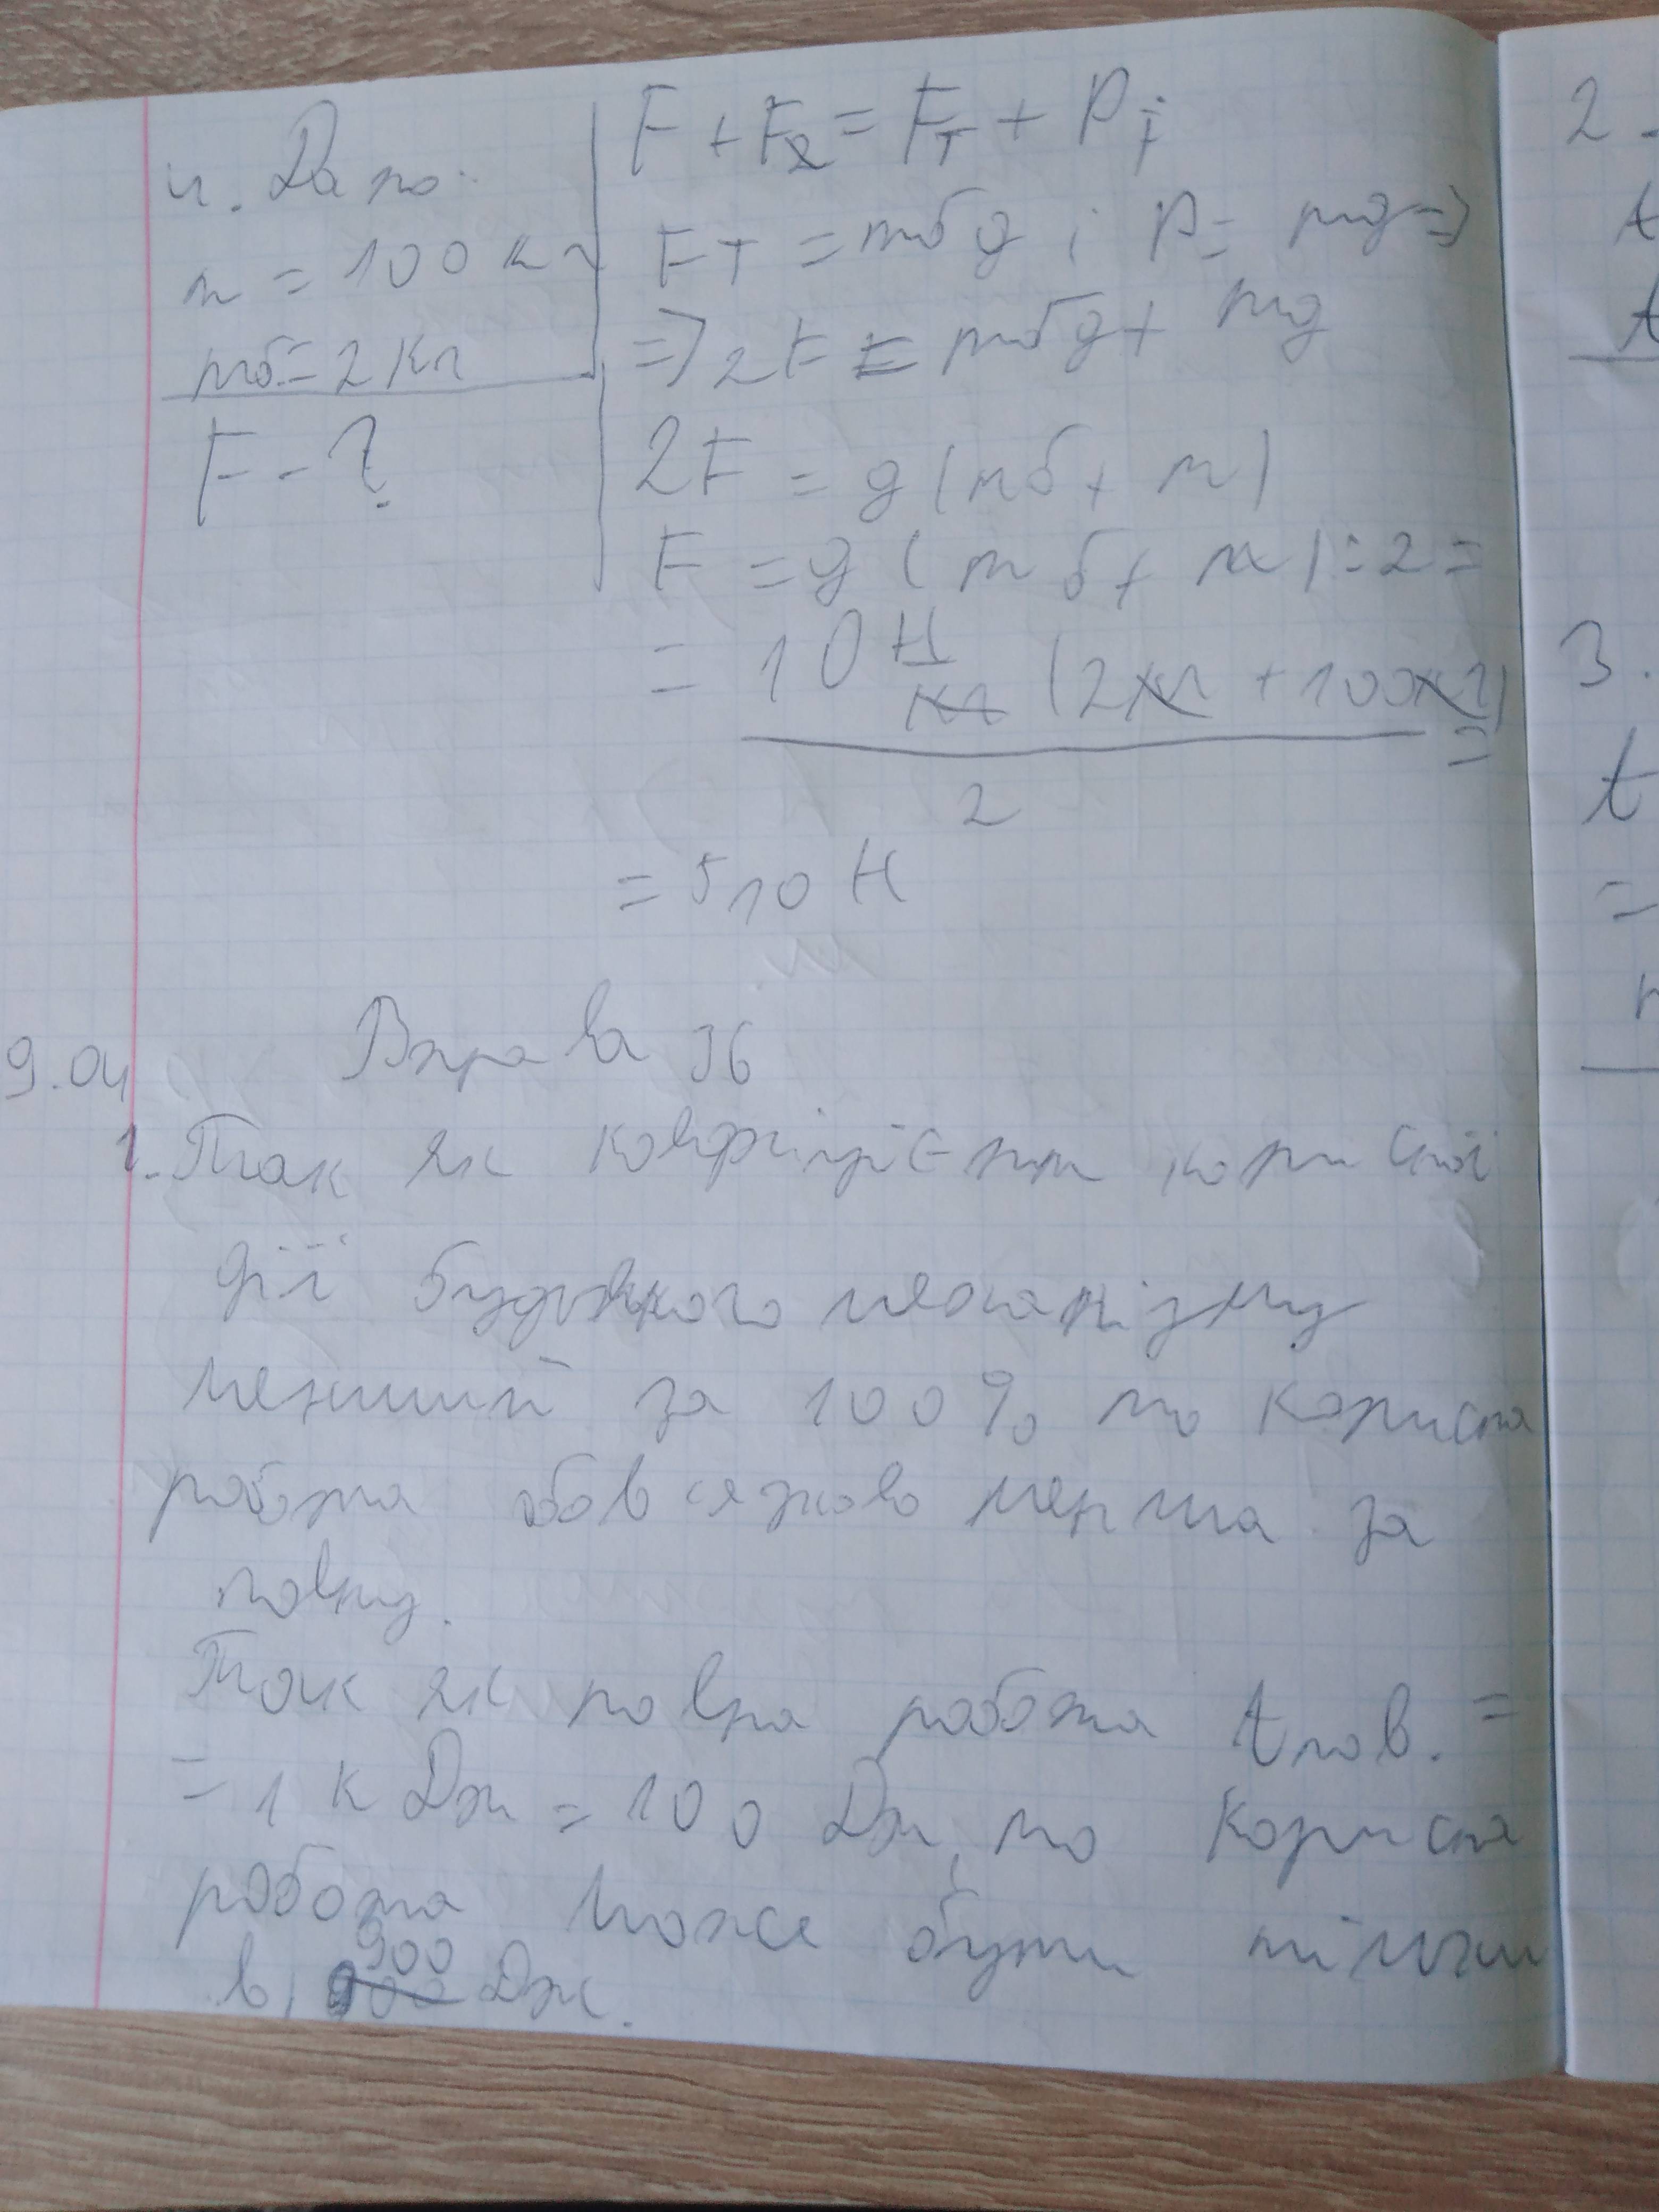 4. Дано:
m = 100 кг
mб = 2 кг
F - ?
F + F2 = Fт + P;
Fт = mбg; P = mg =>
=> 2F = mбg + mg
2F = g(mб + m)
F = g(mб + m) : 2 =
= 10 Н/кг (2кг + 100кг) / 2 =
= 510 Н
9.04 Вправа 36
1. Так як коефіцієнт корисної
дії будь-якого механізму
менший за 100% то корисна
робота обов'язково менша за
повну.
Так як повна робота Aпов. =
= 1 кДж = 100 Дж, то корисна
робота може бути тільки
в) 900 Дж.
2
A
A
3.
A
=